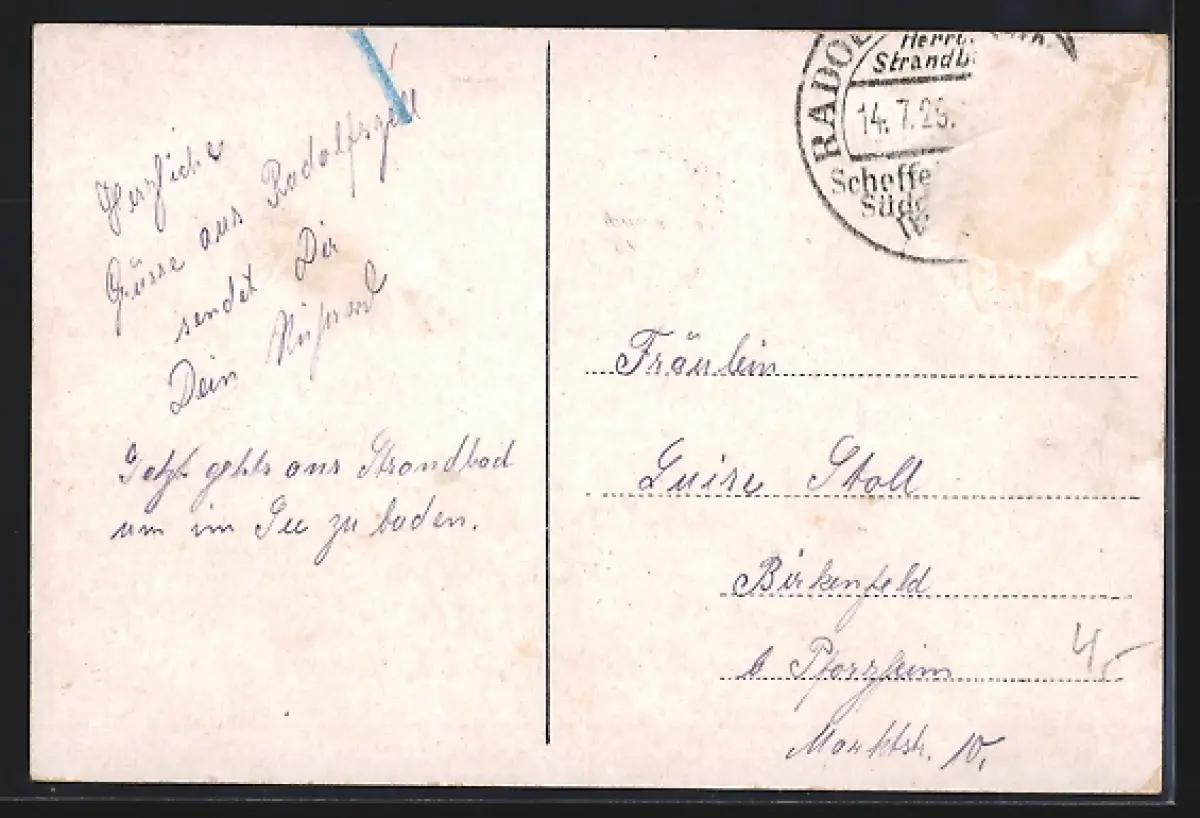 Herzliche
Grüsse aus Radolfszell
sendet Dir
Dein
Jetzt gehts ans Strandbad
um im See zu baden.
RADOL
Herrl.
Strandb.
14.7.26.
Scheffe
Süd
Fräulein
Luise Stoll
Birkenfeld
b Pforzheim
Marktstr. 10.
4,-